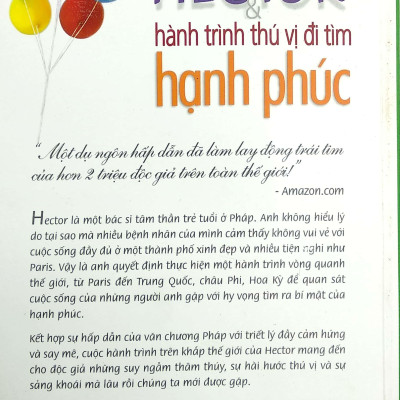 HECTOR
&
hành trình thú vị đi tìm
hạnh phúc
“Một dụ ngôn hấp dẫn đã làm lay động trái tim
của hơn 2 triệu độc giả trên toàn thế giới!”
- Amazon.com
Hector là một bác sĩ tâm thần trẻ tuổi ở Pháp. Anh không hiểu lý
do tại sao mà nhiều bệnh nhân của mình cảm thấy không vui vẻ với
cuộc sống đầy đủ ở một thành phố xinh đẹp và nhiều tiện nghi như
Paris. Vậy là anh quyết định thực hiện một hành trình vòng quanh
thế giới, từ Paris đến Trung Quốc, châu Phi, Hoa Kỳ để quan sát
cuộc sống của những người anh gặp với hy vọng tìm ra bí mật của
hạnh phúc.
Kết hợp sự hấp dẫn của văn chương Pháp với triết lý đầy cảm hứng
và say mê, cuộc hành trình trên khắp thế giới của Hector mang đến
cho độc giả những suy ngẫm thâm thúy, sự hài hước thú vị và sự
sảng khoái mà lâu rồi chúng ta mới được gặp.